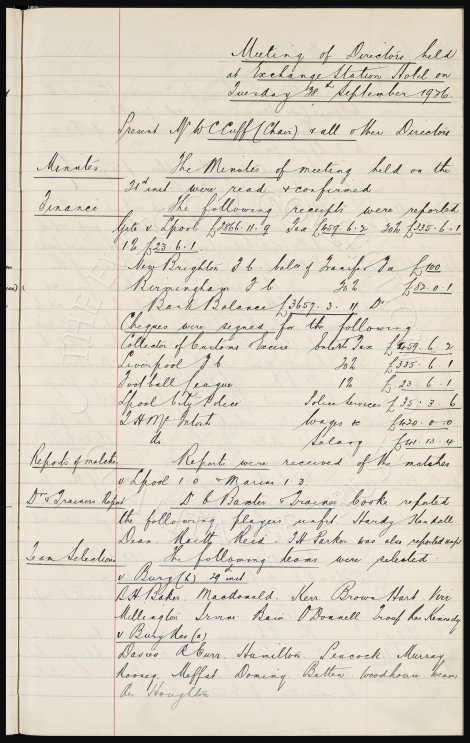 Meeting of Directors held
at Exchange Station Hotel on
Tuesday 28th September 1926.
Present Mr W C Cuff (Chair) & all other Directors
Minutes The Minutes of meeting held on the
21st inst were read & confirmed
Finance The following receipts were reported
Gate v. L'pool £2866.11.9 Tax £459.6.2 20% £335.6.1
1% £23.6.1.
New Brighton F.C. balce of Transfer £100
Birmingham F C 20% £82.0.1
Bank Balance £3657.3.11 Dr
Cheques were signed for the following
Collector of Customs Excise Entert Tax £459.6.2
Liverpool F C 20% £335.6.1
Football League 1% £23.6.1
L'pool City Police Police Services £35.3.6
T H McIntosh Wages &c £420.0.0
do Salary £41.13.4
Reports of matches Reports were received of the matches
v L'pool 1.0 & Marine 1.3.
Dr & Trainers Report Dr C Baxter & Trainer Cooke reported
the following players unfit. Hardy Kendall
Dean. Raitt Reid. J H Parker was also reported unfit
Team Selections The following teams were selected
v Bury (h) 29th inst
B.H. Baker. Macdonald. Kerr Brown Hart Virr
Millington Irvine Bain O'Donnell Troup Res Kennedy
v Bury Res (a)
Davies. R Curr. Hamilton. Peacock. Murray
Rooney. Moffat. Dominy. Batten. Woodhouse Weaver
Res Houghton